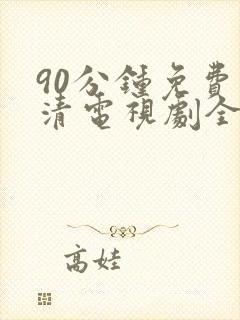 90分鍾免費
清電視劇全
高娃